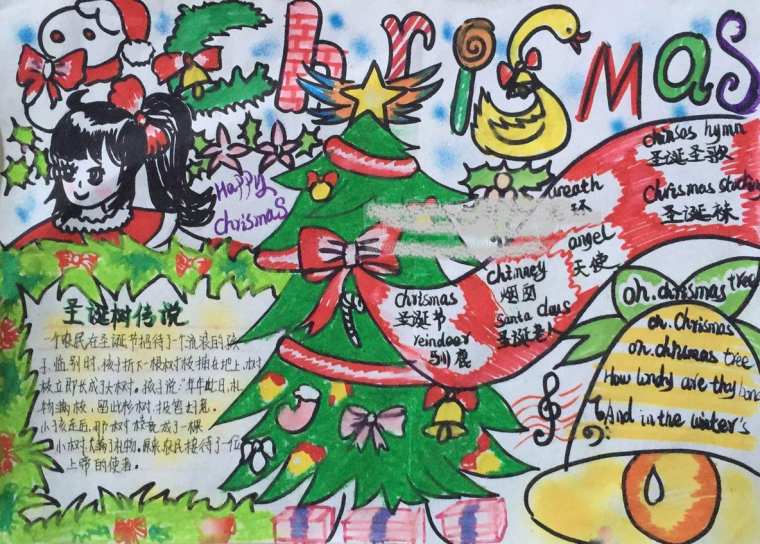 Chrismas
Happy
chrismas
圣诞树传说
一个农民在圣诞节招待了个流浪的孩
子,临别时,孩子折下一根树枝插在地上,树
枝立即长成大树。孩子说:年年此日,礼
物满枝,留此杉树,报答
小孩走后,那树枝竟成了一棵
小树,挂满了礼物。原来农民接待了一位
上帝的使者。
chrismas
圣诞节
reindeer
驯鹿
chimney
烟囱
santa claus
圣诞老人
wreath
环
angel
天使
hymn
圣诞圣歌
chrismas
圣诞袜
oh.chrismas tree
oh.Chrismas
oh.chrismas tree
How are thy
And in the winter's